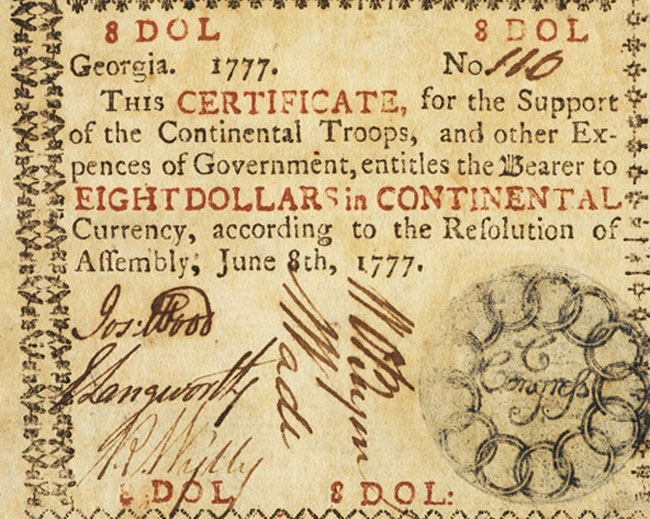 8 DOL 8 DOL
Georgia. 1777. No 110
THIS CERTIFICATE, for the Support
of the Continental Troops, and other Ex-
pences of Government, entitles the Bearer to
EIGHT DOLLARS in CONTINENTAL
Currency, according to the Reſolution of
Aſſembly, June 8th, 1777.
Jos: Wood
E Langworthy
R. Wylly
Nehemh
Wade
C
Congreſs
8 DOL 8 DOL: